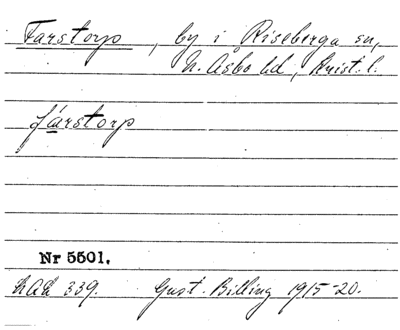 Farstorp, by i Riseberga sn,
N. Åsbo hd, Krist. l.
fárstorp
Nr 5501.
LAL 339. Gust. Billing 1915-20.